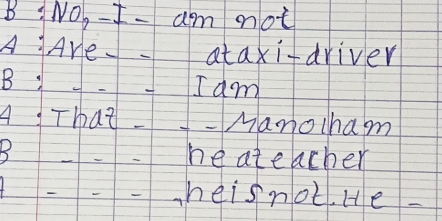 B : No, - I - am not
A : Are - - ataxi-driver
B : - - - I am
A : That - - - Manolham
B - - - he ateacher
A - - - heisnot. He -